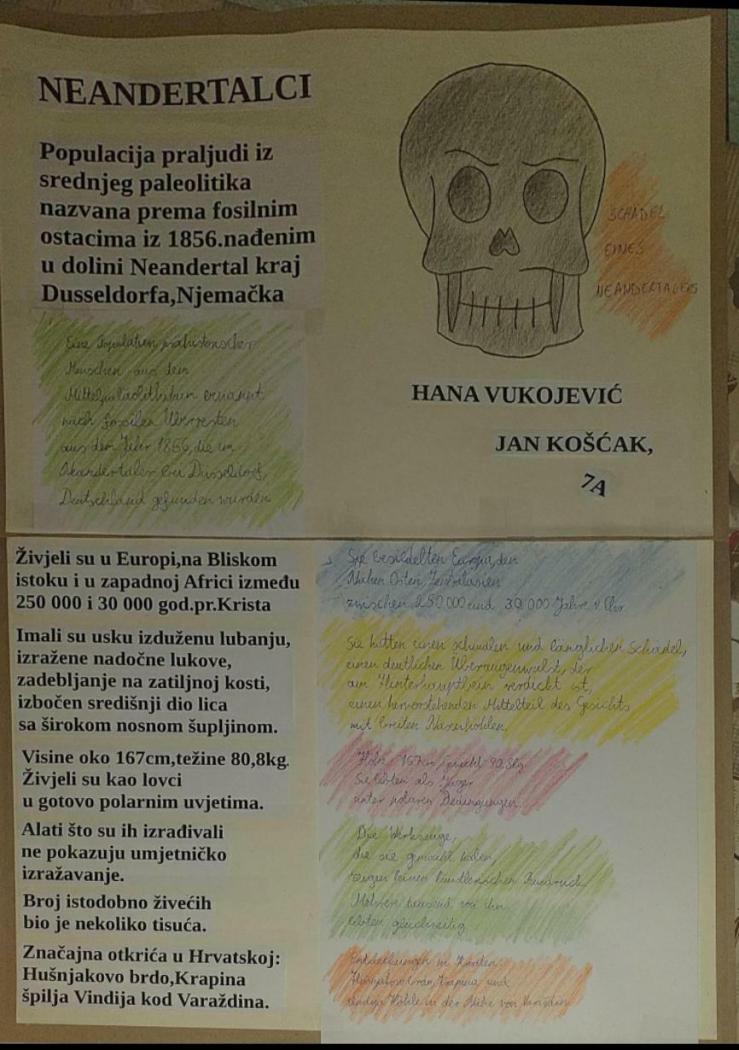 NEANDERTALCI
Populacija praljudi iz
srednjeg paleolitika
nazvana prema fosilnim
ostacima iz 1856.nađenim
u dolini Neandertal kraj
Dusseldorfa,Njemačka
Eine Population prähistorischer
Menschen aus dem
nach fossilen Überresten
aus dem Jahr 1856, die im
Düsseldorf,
Deutschland gefunden wurden
SCHÄDEL
EINES
NEANDERTALERS
HANA VUKOJEVIĆ
JAN KOŠĆAK,
7A
Živjeli su u Europi,na Bliskom
istoku i u zapadnoj Africi između
250 000 i 30 000 god.pr.Krista
Imali su usku izduženu lubanju,
izražene nadočne lukove,
zadebljanje na zatiljnoj kosti,
izbočen središnji dio lica
sa širokom nosnom šupljinom.
Visine oko 167cm,težine 80,8kg.
Živjeli su kao lovci
u gotovo polarnim uvjetima.
Alati što su ih izrađivali
ne pokazuju umjetničko
izražavanje.
Broj istodobno živećih
bio je nekoliko tisuća.
Značajna otkrića u Hrvatskoj:
Hušnjakovo brdo,Krapina
špilja Vindija kod Varaždina.
Sie besiedelten Europa, den
Nahen Osten,
zwischen 250 000 und 30 000 Jahre v. Chr.
Sie hatten einen schmalen und länglichen Schädel,
einen deutlichen Überaugenwulst, der
am Hinterhauptbein verdickt ist,
einen hervorstehenden Mittelteil des Gesichts
mit breiten
167cm
Sie lebten als Jäger
unter polaren Bedingungen
Die Werkzeuge,
die sie gemacht haben,
zeigen keinen künstlerischen Ausdruck
tausend von ihn
lebten gleichzeitig
Krapina und
Höhle in der Nähe von